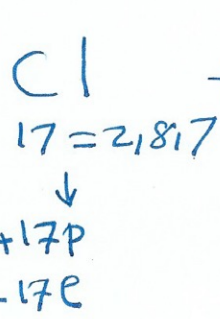 Cl -
17=2,8,7
↓
+17p
-17e